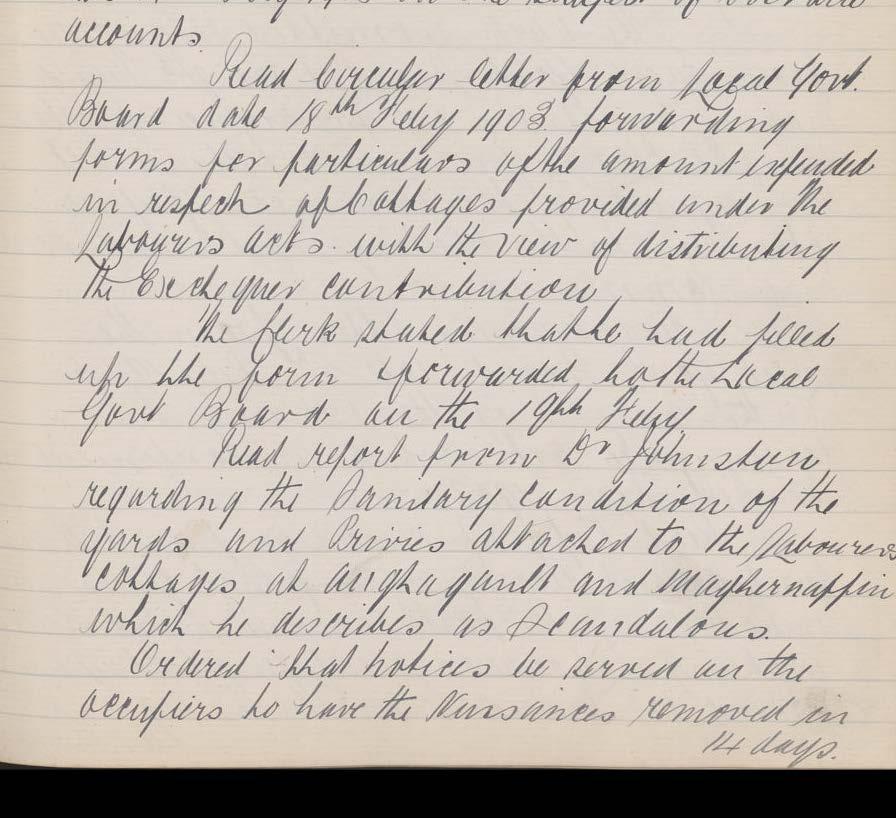 of
accounts.
Read Circular letter from Local Govt.
Board date 18th Feby 1903 forwarding
forms for particulars of the amount expended
in respect of Cottages provided under the
Labourers Acts. with the view of distributing
the Exchequer contribution
The Clerk stated that he had filled
up the form & forwarded to the Local
Govt Board on the 19th Feby
Read report from Dr Johnston
regarding the Sanitary condition of the
yards and Privies attached to the Labourers
cottages at Aughagault and Maghernaffin
which he describes as Scandalous.
Ordered that notices be served on the
occupiers to have the Nuisances removed in
14 days.